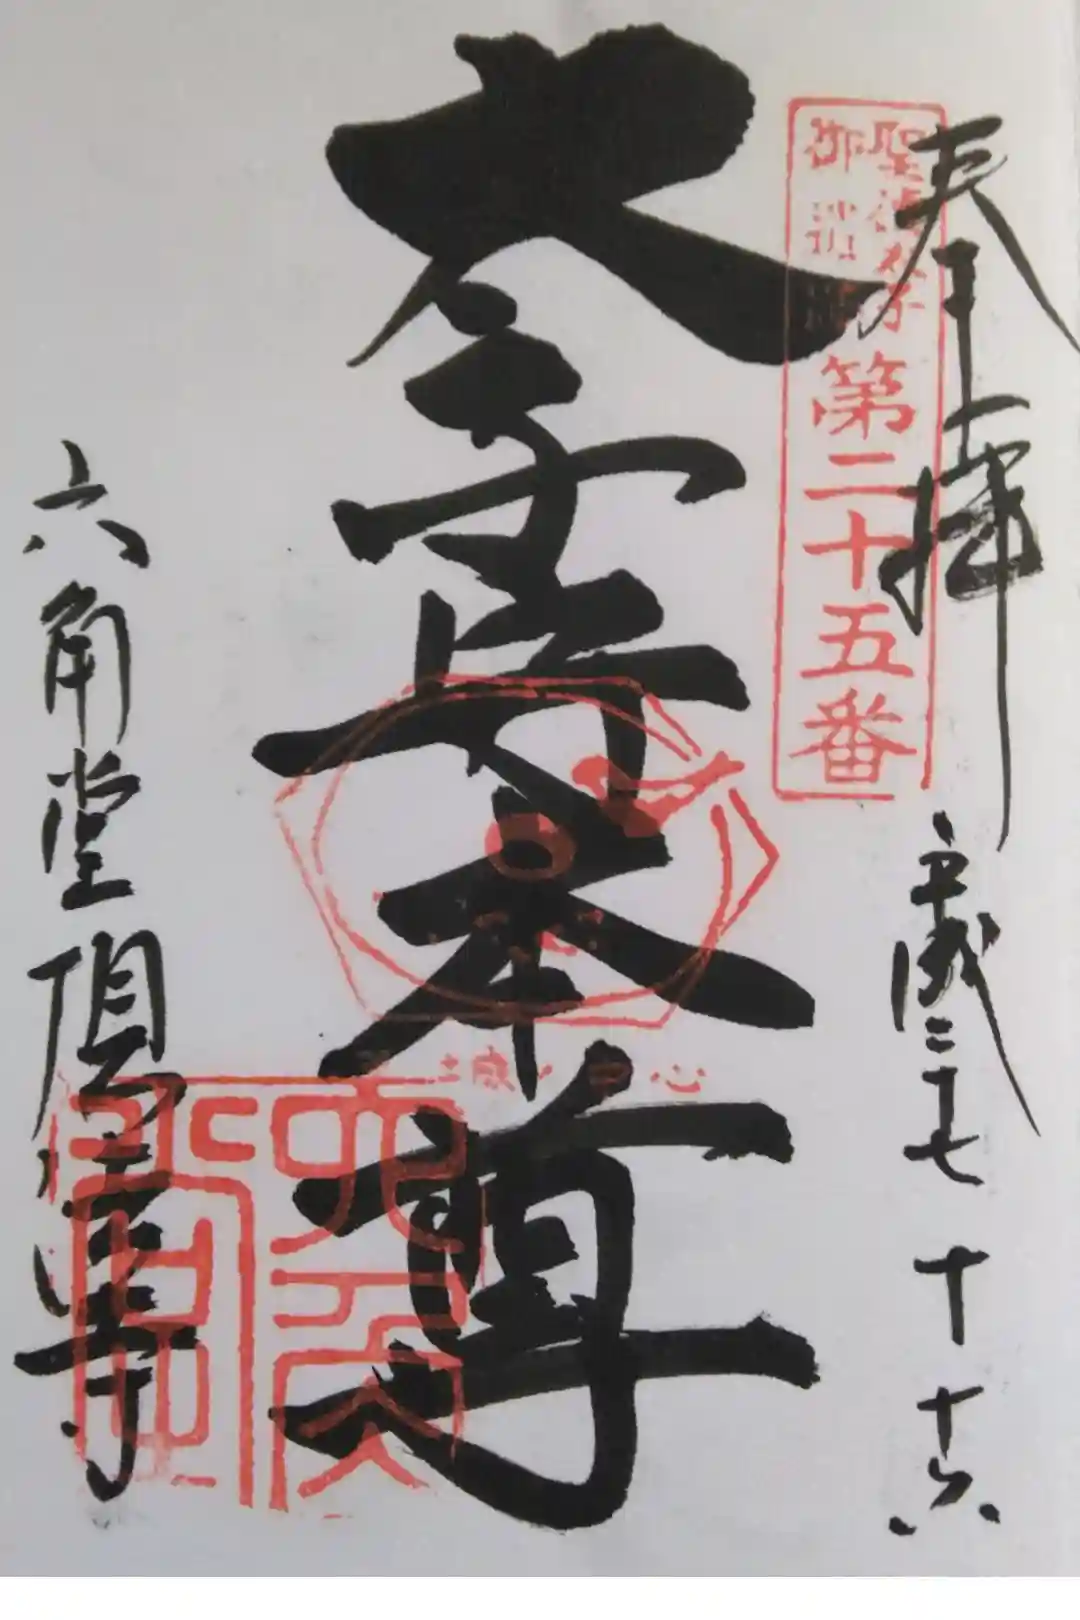 奉拝
平成二十七 十 十六
聖徳太子
御遺跡
第二十五番
太子守本尊
六角堂頂法寺